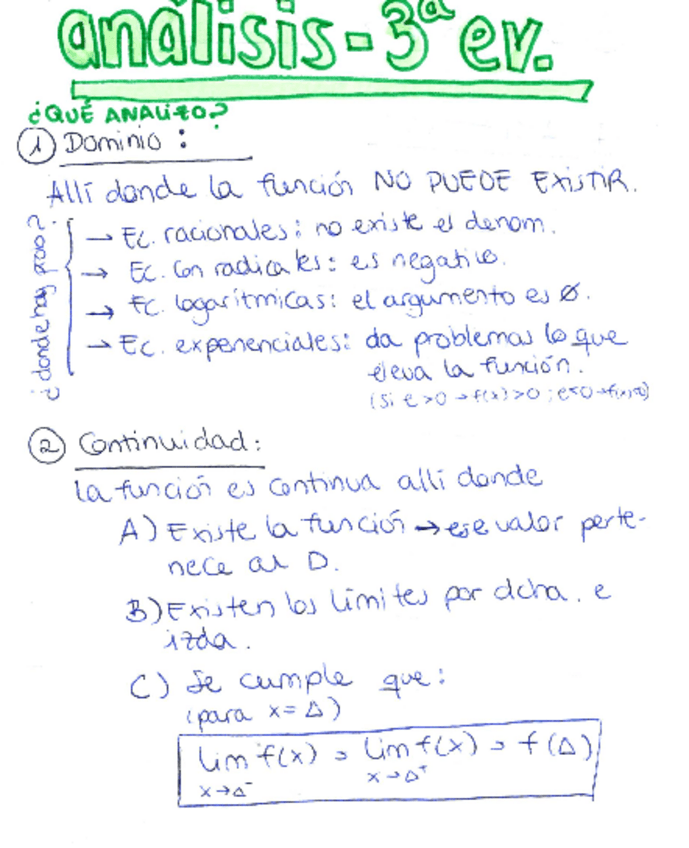 análisis - 3ª ev.
¿QUÉ ANALIZO?
1 Dominio:
Allí donde la función NO PUEDE EXISTIR.
¿donde hay prob?
→ Ec. racionales: no existe el denom.
→ Ec. Con radicales: es negativo.
→ Ec. logarítmicas: el argumento es Ø.
→ Ec. expenenciales: da problemas lo que
eleva la función.
(Si e >0 → f(x) >0 ; e<0 →
2 Continuidad:
La función es continua allí donde
A) Existe la función → ese valor perte-
nece al D.
B) Existen los límites por dcha. e
izda.
C) Se cumple que:
(para x = Δ)
lim f(x) = lim f(x) = f(Δ)
x→Δ⁻ x→Δ⁺